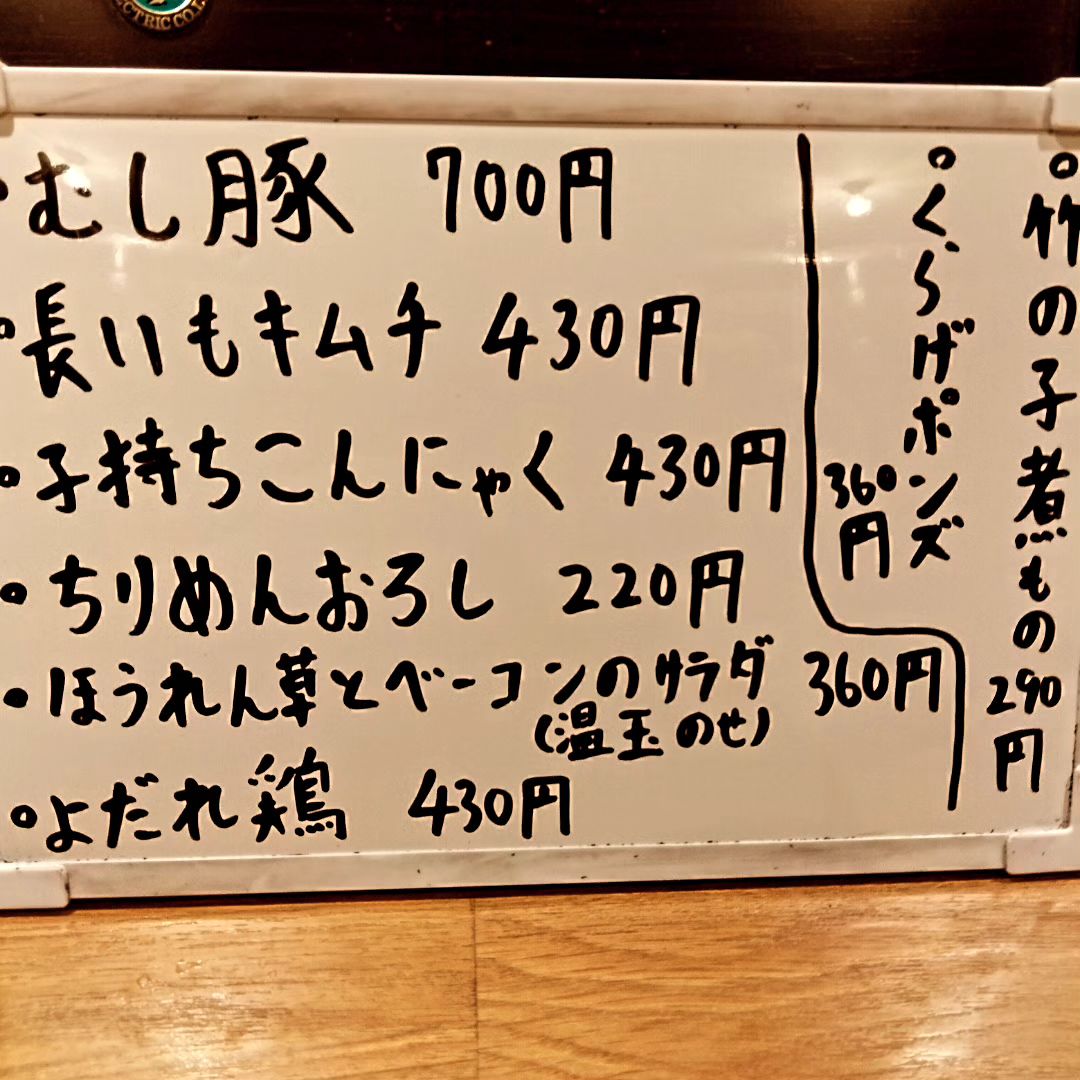 ・むし豚 700円
・長いもキムチ 430円
・子持ちこんにゃく 430円
・ちりめんおろし 220円
・ほうれん草とベーコンのサラダ 360円
(温玉のせ)
・よだれ鶏 430円
・竹の子煮もの 290円
・くらげポンズ 360円
ECTRIC CO.L